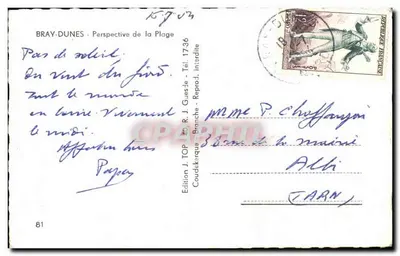 BRAY-DUNES - Perspective de la Plage
Pas de soleil
du vent du froid
tout le monde
en laine Vivement
le midi
Affectueux
Papa
81
Edition J. TOP - R. J. Guesde - Tél. 17-36
Coudekerque - Branche - Reprod. interdite
REPUBLIQUE FRANÇAISE
Mme P. Chaffanjon
de la mairie
Albi
(TARN)